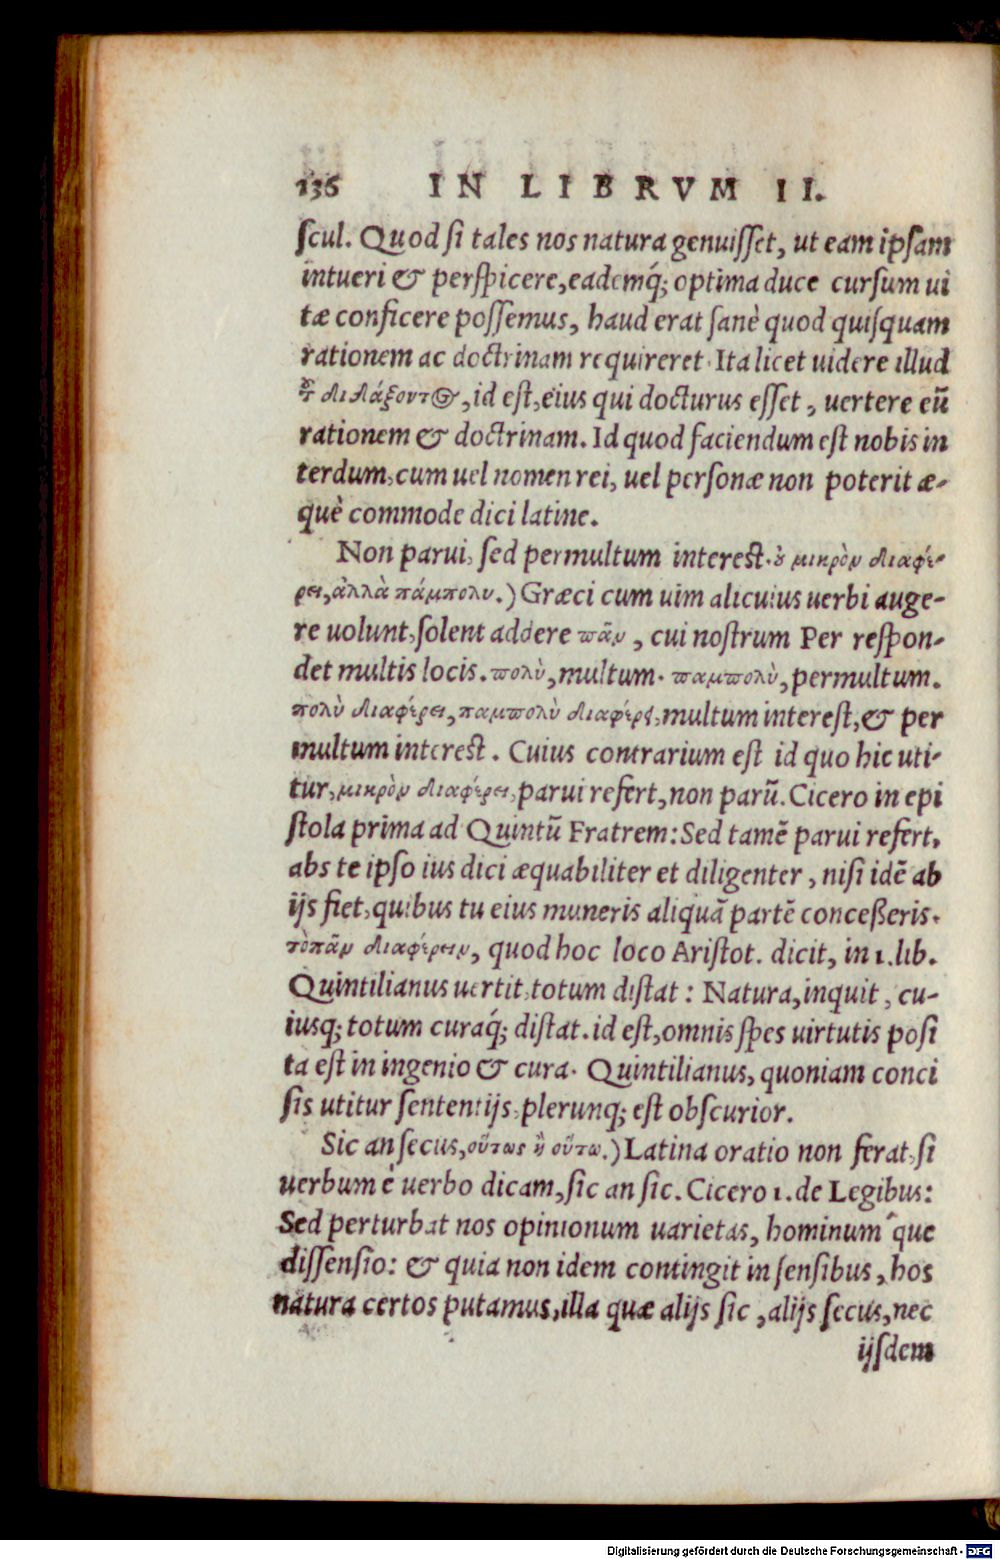 136 IN LIBRVM II.
ſcul. Quod ſi tales nos natura genuiſſet, ut eam ipſam
intueri & perſpicere, eademq́; optima duce curſum ui
tæ conficere poſſemus, haud erat ſanè quod quiſquam
rationem ac doctrinam requireret. Ita licet uidere illud
τ͂ διδάξοντος, id eſt, eius qui docturus eſſet, uertere eū
rationem & doctrinam. Id quod faciendum eſt nobis in
terdum, cum uel nomen rei, uel perſonæ non poterit æ-
què commode dici latine.
Non parui, ſed permultum intereſt. ȣ̓ μικρὸν διαφέ-
ρει, ἀλλὰ πάμπολυ.) Græci cum uim alicuius uerbi auge-
re uolunt, ſolent addere πᾶν, cui noſtrum Per reſpon-
det multis locis. πολὺ, multum. παμπολὺ, permultum.
πολὺ διαφέρει, παμπολὺ διαφέρει, multum intereſt, & per
multum intereſt. Cuius contrarium eſt id quo hic uti-
tur, μικρὸν διαφέρει, parui refert, non parū. Cicero in epi
ſtola prima ad Quintū Fratrem: Sed tamē parui refert,
abs te ipſo ius dici æquabiliter et diligenter, niſi idē ab
ijs fiet, quibus tu eius muneris aliquā partē conceßeris.
τὸπᾶν διαφέρειν, quod hoc loco Ariſtot. dicit, in 1. lib.
Quintilianus uertit, totum diſtat: Natura, inquit, cu-
iusq; totum curaq́; diſtat. id eſt, omnis ſpes uirtutis poſi
ta eſt in ingenio & cura. Quintilianus, quoniam conci
ſis utitur ſententijs, plerunq; eſt obſcurior.
Sic an ſecus, οὕτως ἢ οὕτω.) Latina oratio non ferat, ſi
uerbum è uerbo dicam, ſic an ſic. Cicero 1. de Legibus:
Sed perturbat nos opinionum uarietas, hominuḿque
diſſenſio: & quia non idem contingit in ſenſibus, hos
natura certos putamus, illa quæ alijs ſic, alijs ſecus, nec
ijſdem
Digitalisierung gefördert durch die Deutsche Forschungsgemeinschaft - DFG